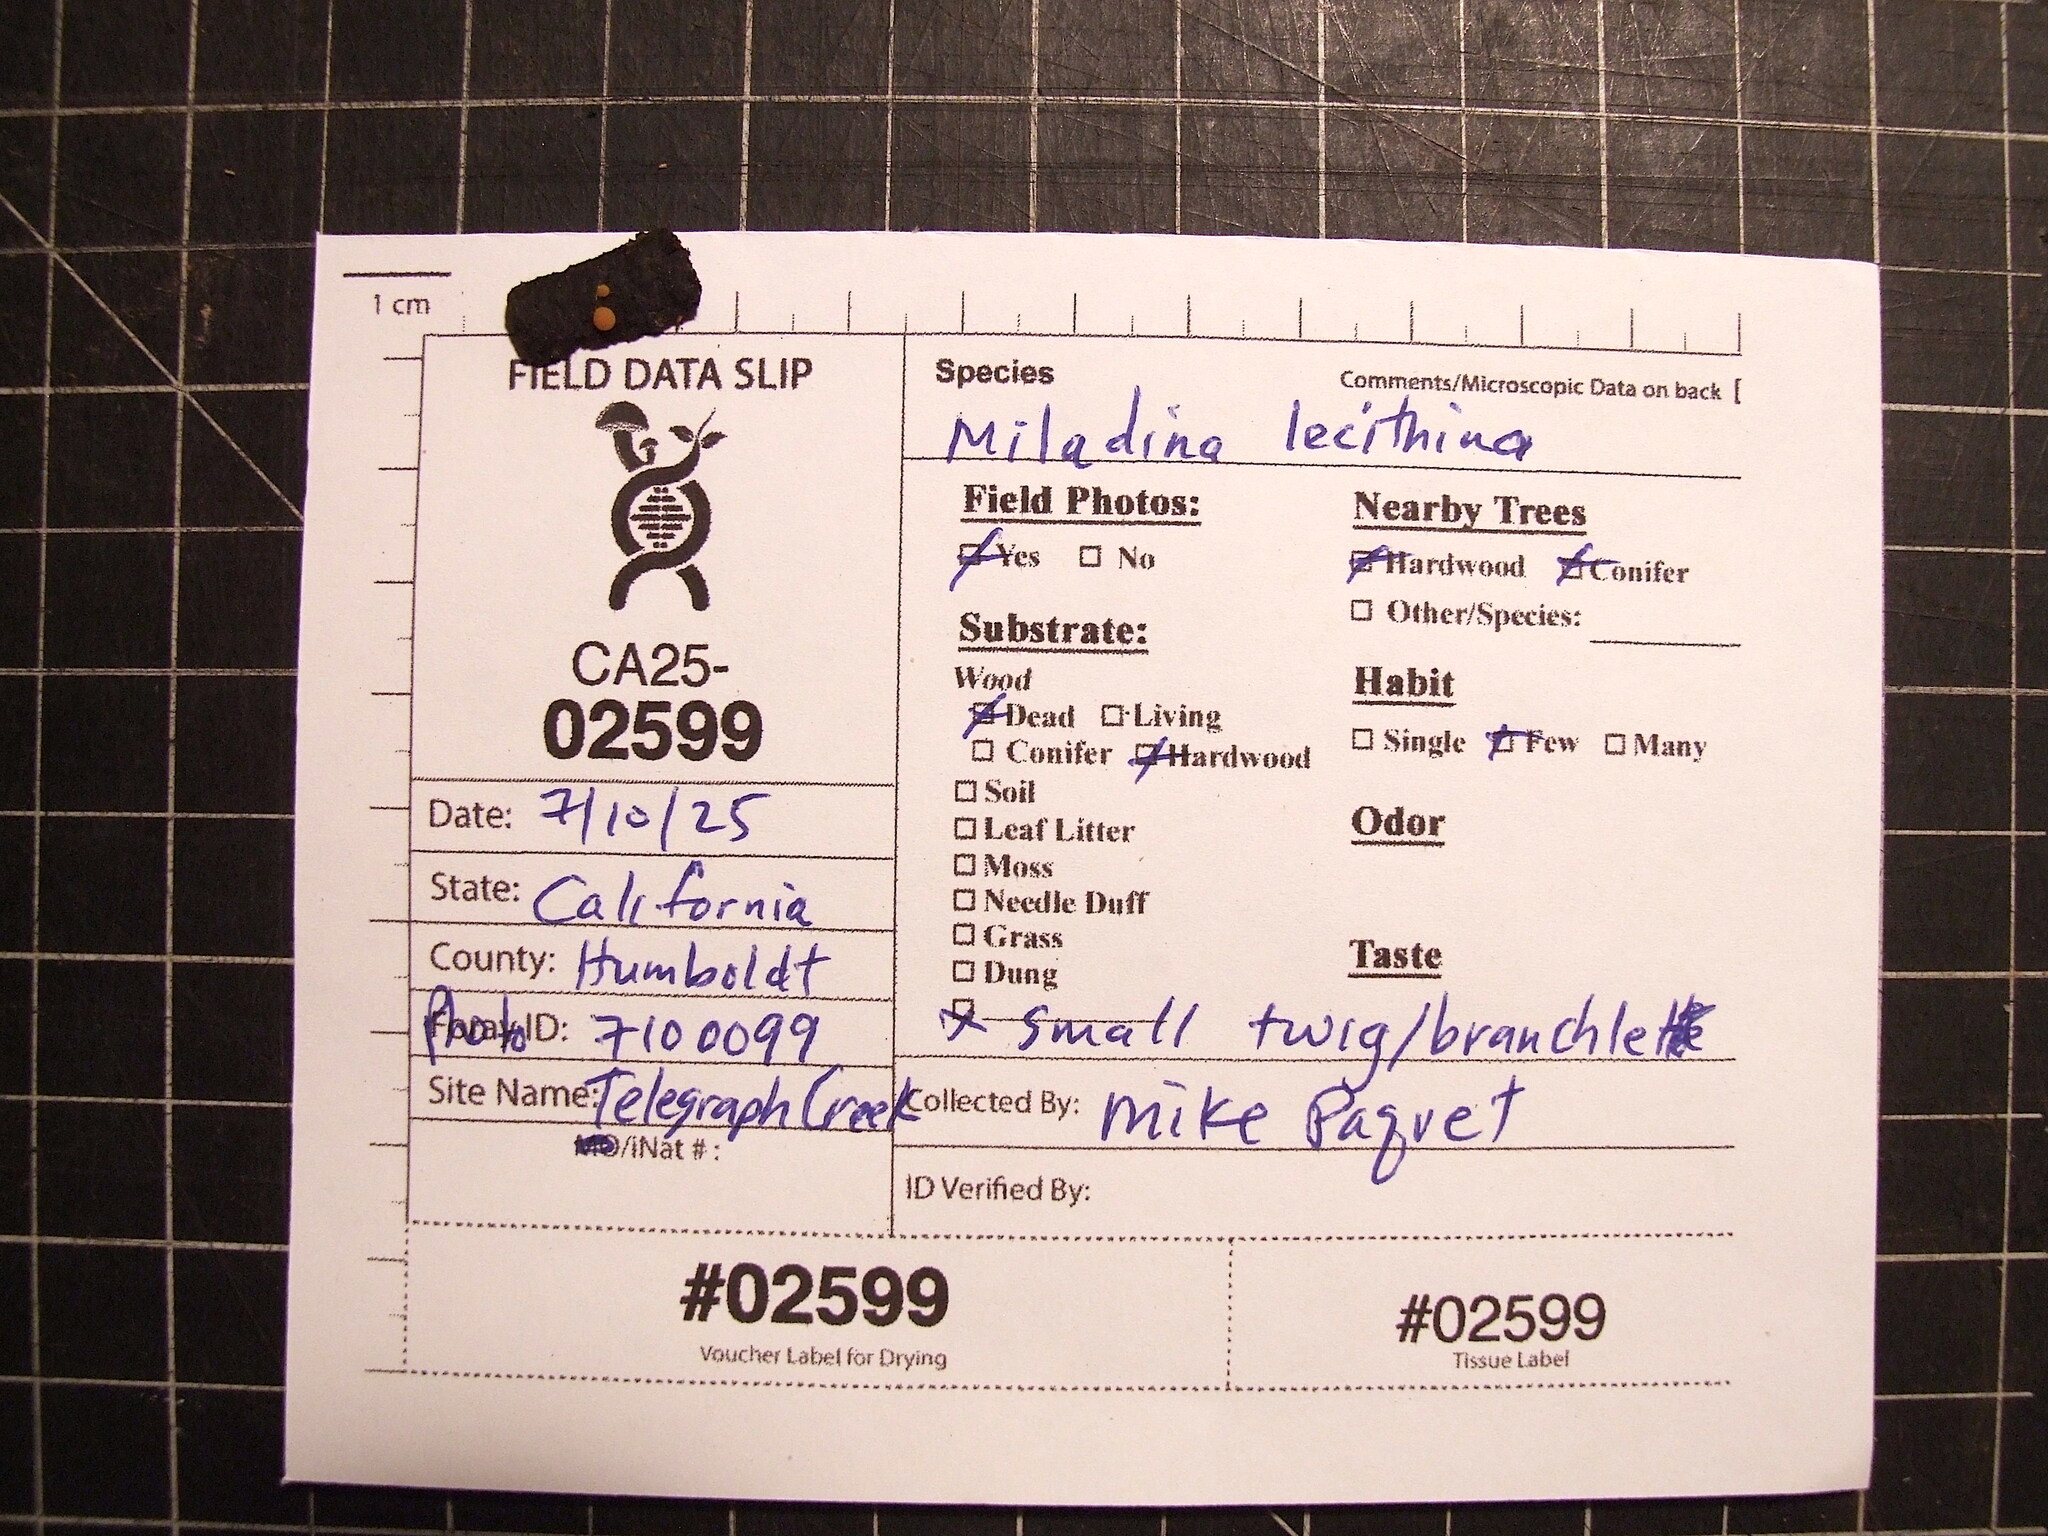 1 cm
FIELD DATA SLIP
CA25-
02599
Date: 7/10/25
State: California
County: Humboldt
Photo ID: 7100099
Site Name: Telegraph Creek
/iNat # :
Species
Comments/Microscopic Data on back [
Miladina lecithina
Field Photos:
☐ Yes ☐ No
Substrate:
Wood
☐ Dead ☐ Living
☐ Conifer ☐ Hardwood
☐ Soil
☐ Leaf Litter
☐ Moss
☐ Needle Duff
☐ Grass
☐ Dung
☐ x small twig/branchlet
Nearby Trees
☐ Hardwood ☐ Conifer
☐ Other/Species:
Habit
☐ Single ☐ Few ☐ Many
Odor
Taste
Collected By: Mike Paquet
ID Verified By:
#02599
Voucher Label for Drying
#02599
Tissue Label